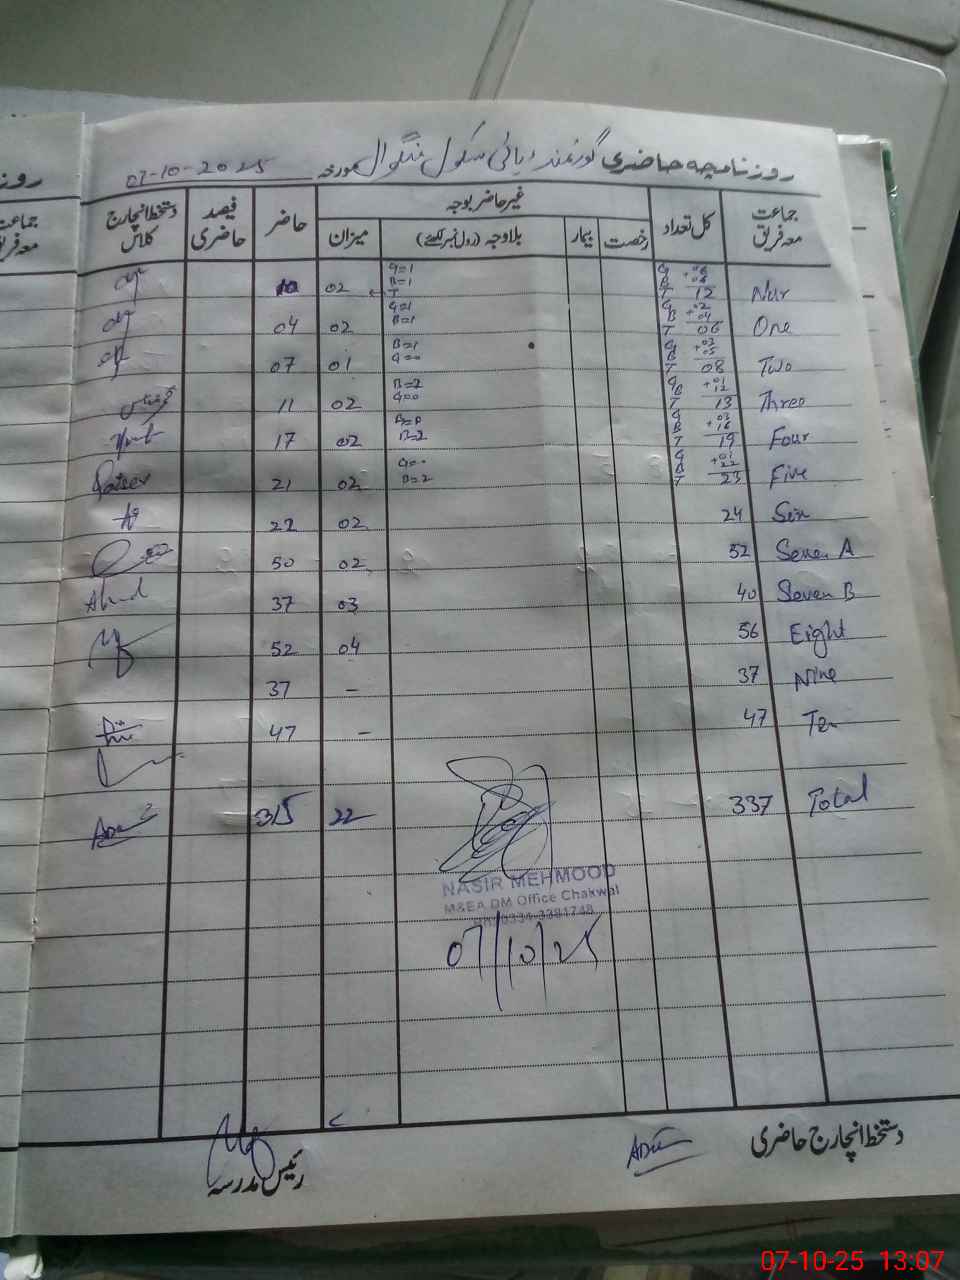 روزنامچہ حاضری گورنمنٹ ہائی سکول منگوال مورخہ 07-10-2025
جماعت معہ فریق کل تعداد غیر حاضر بوجہ حاضر فیصد حاضری دستخط انچارج کلاس
رخصت بیمار بلاوجہ (رول نمبر لکھئے) میزان
Nur G B T +06 06 12 G=1 B=1 T 02 10
One G B T +02 04 06 G=1 B=1 02 04
Two G B T +03 05 08 B=1 G=0 01 07
Three G B T +01 12 13 B=2 G=0 02 11
Four G B T +03 16 19 B=2 02 17
Five G B T +01 22 23 G=0 B=2 02 21
Six 24 02 22
Seven A 52 02 50
Seven B 40 03 37 Ahmad
Eight 56 04 52
Nine 37 – 37
Ten 47 – 47
Total 337 22 315
NASIR MEHMOOD
M&EA DM Office Chakwal
0334-3381748
07/10/25
دستخط انچارج حاضری
رئیس مدرسہ
روز
جماعت
معہ فریق
07-10-25 13:07